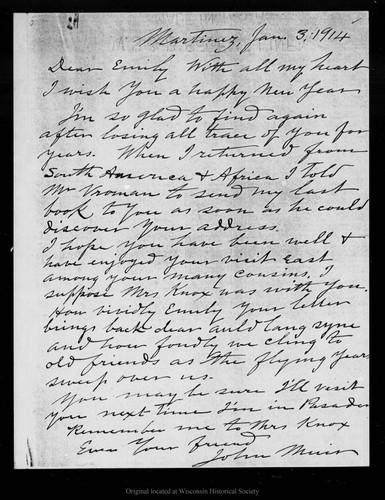 Martinez, Jan. 3, 1914
Dear Emily With all my heart
I wish You a happy New Year
I'm so glad to find again
after losing all trace of you for
years. When I returned from
South America & Africa I told
Mr Vroman to send my last
book to You as soon as he could
discover Your address.
I hope you have been well &
have enjoyed your visit East
among your many cousins. I
suppose Mrs Knox was with You.
How vividly Emily Your letter
brings back dear auld lang syne
and how fondly we cling to
old friends as the flying Years
sweep over us.
You may be sure I'll visit
you next time I'm in Pasadena
Remember me to Mrs Knox
Ever Your friend
John Muir
Original located at Wisconsin Historical Society